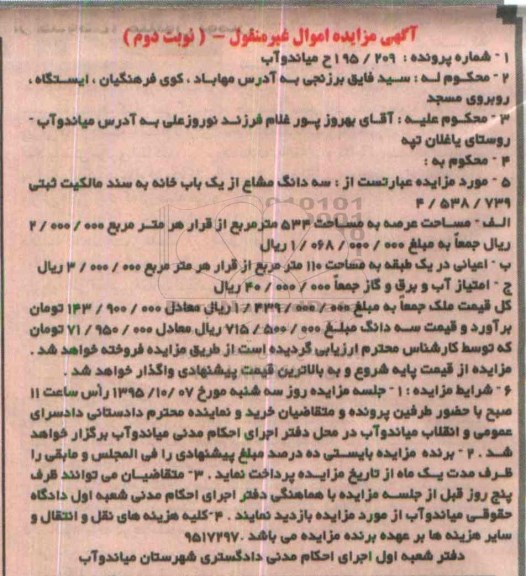 آگهی مزایده اموال غیرمنقول – ( نوبت دوم )
۱ - شماره پرونده : ۲۰۹ / ۱۹۵ ح میاندوآب
۲ - محکوم له : سید فایق برزنجی به آدرس مهاباد ، کوی فرهنگیان ، ایستگاه ،
روبروی مسجد
۳ - محکوم علیه : آقای بهروز پور غلام فرزند نوروزعلی به آدرس میاندوآب -
روستای یاغلان تپه
۴ - محکوم به :
۵ - مورد مزایده عبارتست از : سه دانگ مشاع از یک باب خانه به سند مالکیت ثبتی
۷۳۹ / ۵۳۸ / ۴
الف - مساحت عرصه به مساحت ۵۳۴ مترمربع از قرار هر متر مربع ۰۰۰ / ۰۰۰ / ۲
ریال جمعاً به مبلغ ۰۰۰ / ۰۰۰ / ۰۶۸ / ۱ ریال
ب - اعیانی در یک طبقه به مساحت ۱۱۰ متر مربع از قرار هر متر مربع ۰۰۰ / ۰۰۰ / ۳ ریال
ج - امتیاز آب و برق و گاز جمعاً ۰۰۰ / ۰۰۰ / ۴۰ ریال
کل قیمت ملک جمعاً به مبلغ ۰۰۰ / ۰۰۰ / ۴۳۹ / ۱ ریال معادل ۰۰۰ / ۹۰۰ / ۱۴۳ تومان
برآورد و قیمت سه دانگ مبلغ ۰۰۰ / ۵۰۰ / ۷۱۵ ریال معادل ۰۰۰ / ۹۵۰ / ۷۱ تومان
که توسط کارشناس محترم ارزیابی گردیده است از طریق مزایده فروخته خواهد شد .
مزایده از قیمت پایه شروع و به بالاترین قیمت پیشنهادی واگذار خواهد شد .
۶ - شرایط مزایده : ۱ - جلسه مزایده روز سه شنبه مورخ ۰۷ /۱۰/ ۱۳۹۵ رأس ساعت ۱۱
صبح با حضور طرفین پرونده و متقاضیان خرید و نماینده محترم دادستانی دادسرای
عمومی و انقلاب میاندوآب در محل دفتر اجرای احکام مدنی میاندوآب برگزار خواهد
شد . ۲ - برنده مزایده بایستی ده درصد مبلغ پیشنهادی را فی المجلس و مابقی را
ظرف مدت یک ماه از تاریخ مزایده پرداخت نماید . ۳- متقاضیان می توانند ظرف
پنج روز قبل از جلسه مزایده با هماهنگی دفتر اجرای احکام مدنی شعبه اول دادگاه
حقوقی میاندوآب از مورد مزایده بازدید نمایند . ۴-کلیه هزینه های نقل و انتقال و
سایر هزینه ها بر عهده برنده مزایده می باشد .۹۵۱۷۲۹۷
دفتر شعبه اول اجرای احکام مدنی دادگستری شهرستان میاندوآب